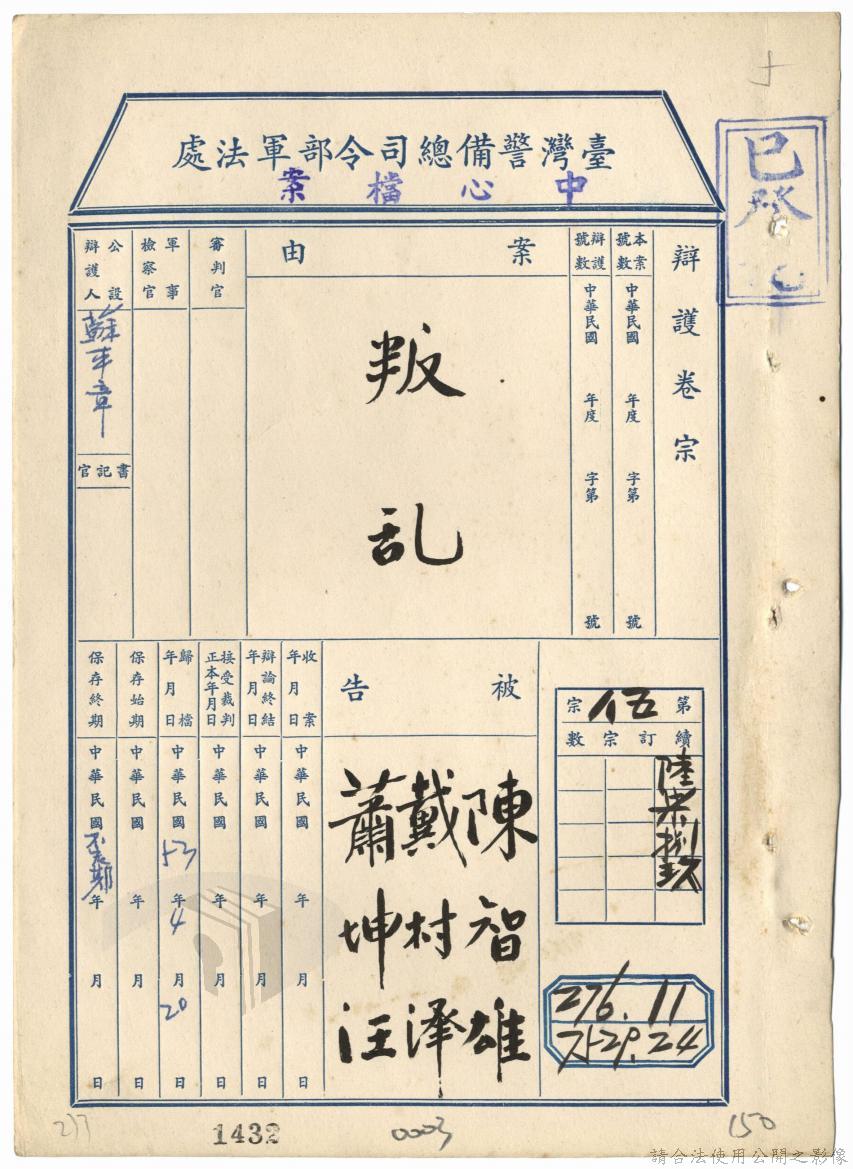 臺灣警備總司令部軍法處
中心檔案
已登記
辯護卷宗
本案號數
中華民國 年度 字第 號
辯護號數
中華民國 年度 字第 號
案由
叛乱
審判官
軍事檢察官
公設辯護人
書記官
第五宗
續訂宗數
陸柒捌玖
276.11
被告
陳智雄
戴村澤
蕭坤汪
收案年月日
中華民國 年 月 日
辯論終結年月日
中華民國 年 月 日
接受裁判正本年月日
中華民國 年 月 日
歸檔年月日
中華民國53年4月20日
保存始期
中華民國 年 月 日
保存終期
中華民國 年 月 日
217
1432
0003
150
請合法使用公開之影像